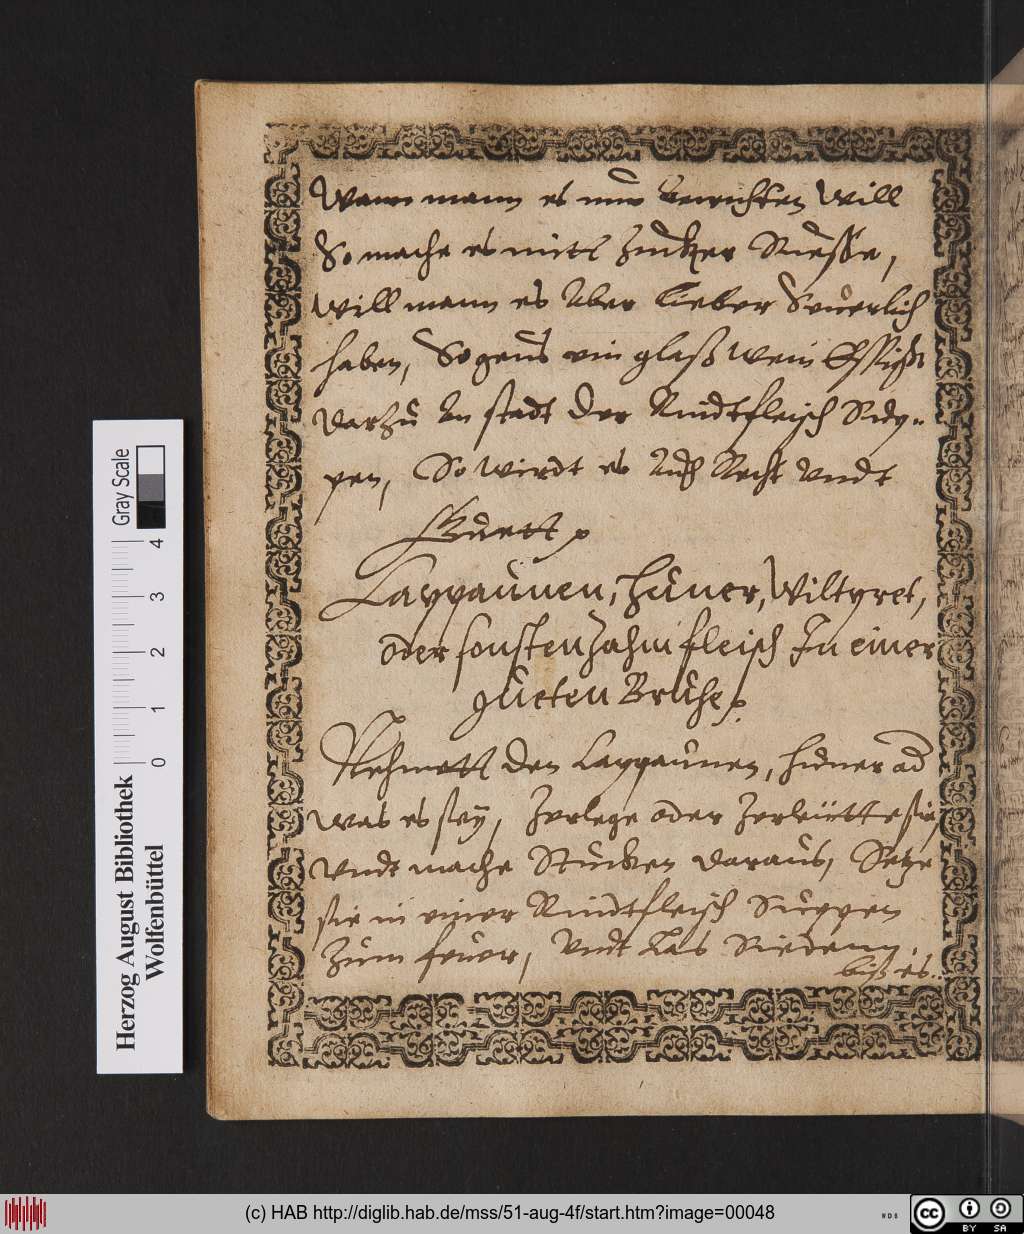 Wann mann es nun verrichten Will
So mache es mitt Zucker Suesse,
Will mann es Aber Lieber Seuerlich
haben, So geus ein glaß Wein Essigks
darzu An stadt der Rindtfleisch Sup-
pen, So Wirdt es Auch Recht Undt
Guett
Cappaunen, Huner, Wiltpret,
oder sonsten Zahm fleisch In einer
gueten Bruhe
Nehmett den Cappaunen, Hüner od
Was es sey, Zerlege oder Zer
Undt mache Stucken daraus, Setze
sie in einer Rindtfleisch Suppen
Zum feuer, Undt Las Siedenn,
biß es
Herzog August Bibliothek
Wolfenbüttel
Gray Scale
0 1 2 3 4
(c) HAB http://diglib.hab.de/mss/51-aug-4f/start.htm?image=00048
WDB
cc BY SA